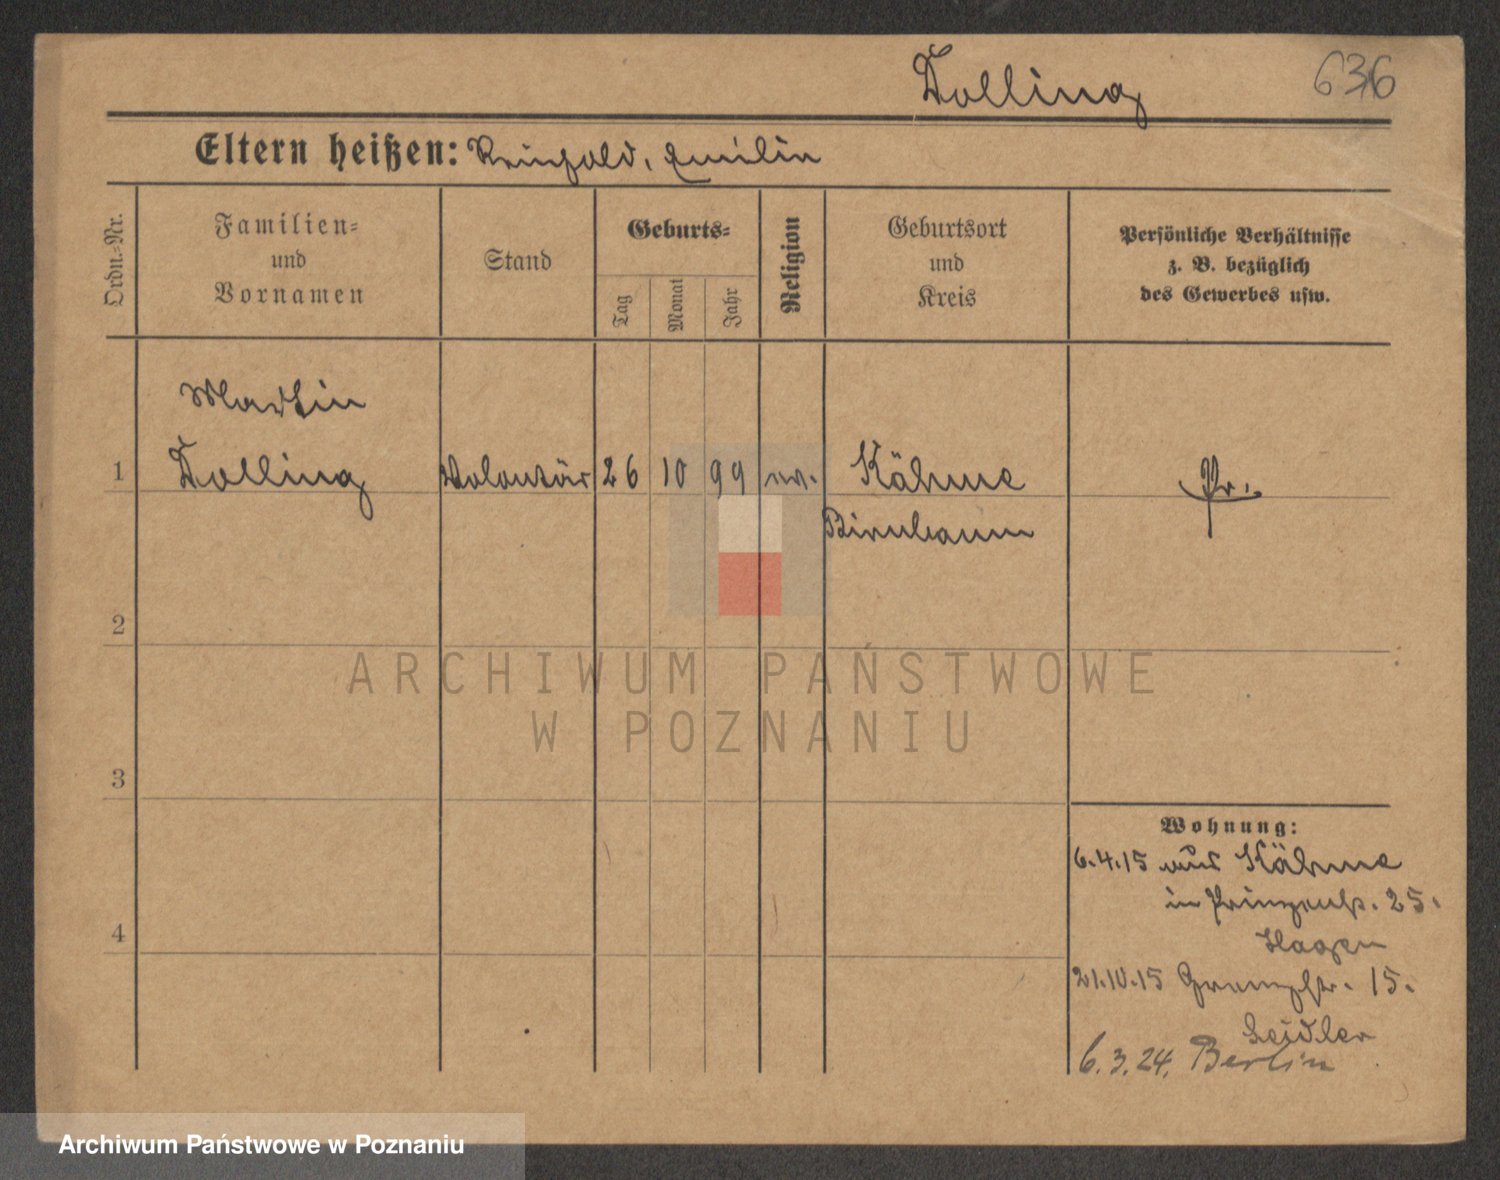 Dolling
636
Eltern heißen: Reinhold, Emilie
Ordn.-Nr.
Familien-
und
Vornamen
Stand
Geburts-
Tag
Monat
Jahr
Religion
Geburtsort
und
Kreis
Persönliche Verhältnisse
z. B. bezüglich
des Gewerbes usw.
Martin
1 Dolling Volontär 26 10 99 ev. Kähme Pr.
Birnbaum
2
3
4
Wohnung:
6.4.15 aus Kähme
in Prinzenstr. 25.
Hagen
21.10.15 Grenzstr. 15.
Zeidler
6.3.24. Berlin
ARCHIWUM PAŃSTWOWE
W POZNANIU
Archiwum Państwowe w Poznaniu